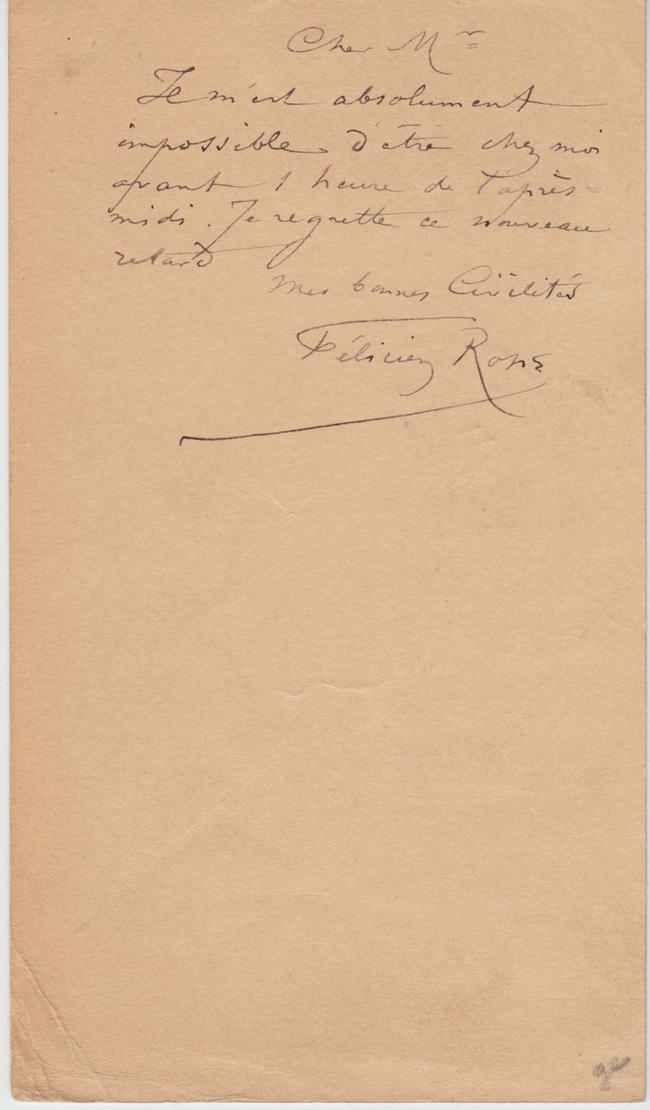 Cher Mr
Il m'est absolument
impossible d'être chez moi
avant 1 heure de l'après-
midi. Je regrette ce nouveau
retard
Mes bonnes Civilités
Félicien Rops